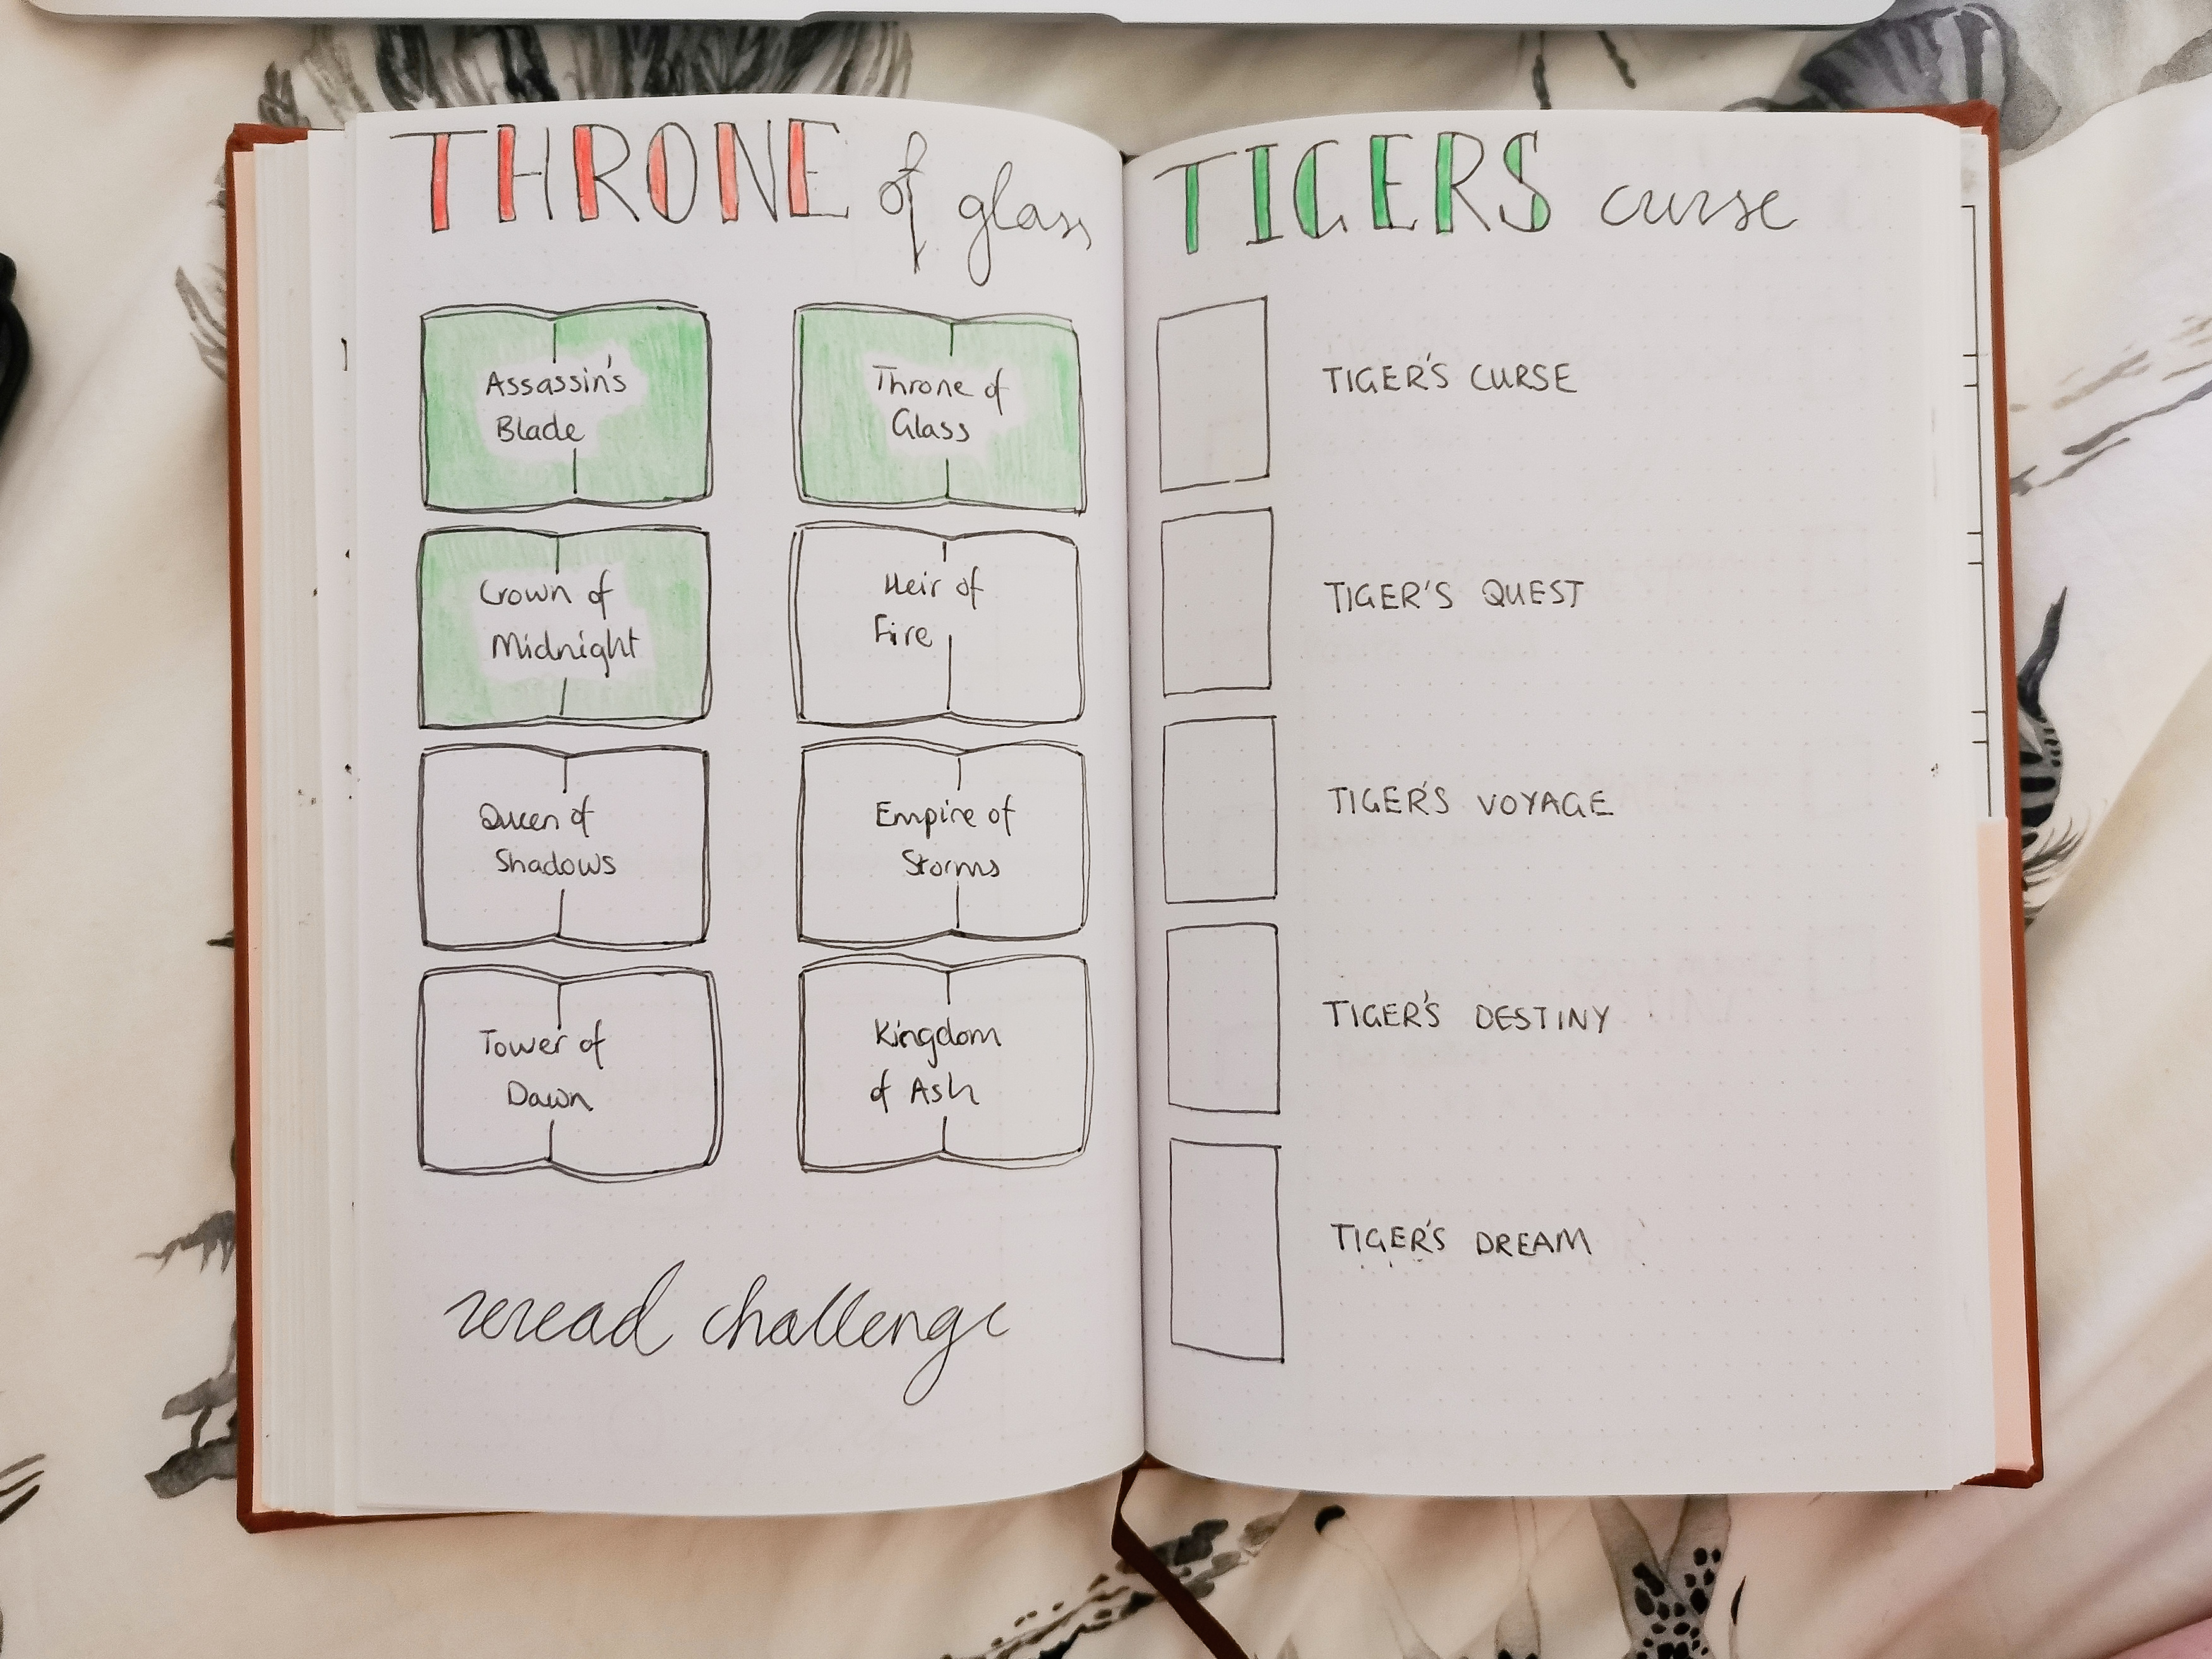 THRONE of glass
Assassin's
Blade
Throne of
Glass
Crown of
Midnight
Heir of
Fire
Queen of
Shadows
Empire of
Storms
Tower of
Dawn
Kingdom
of Ash
reread challenge
TIGERS curse
TIGER'S CURSE
TIGER'S QUEST
TIGER'S VOYAGE
TIGER'S DESTINY
TIGER'S DREAM